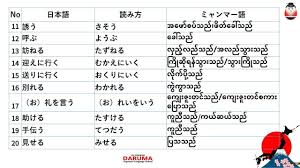 No 日本語 読み方 ミャンマー語
11 誘う さそう ဖော်စပ်သည်၊ဖိတ်ခေါ်သည်
12 呼ぶ ようぶ ခေါ်သည်
13 訪ねる たずねる လှည့်လည်သည်/အလည်သွားသည်
14 迎えに行く むかえにいく ကြိုဆိုရန်သွားသည်/သွားကြိုသည်
15 送りに行く おくりにいく လိုက်ပို့သည်
16 別れる わかれる ကွဲကွာသည်
17 (お)礼を言う (お)れいをいう ကျေးဇူးတင်သည်/ကျေးဇူးတင်စကားပြောသည်
18 助ける たすける ကူညီသည်/ကယ်ဆယ်သည်
19 手伝う てつだう ကူညီသည်
20 見せる みせる ပြသသည်
DARUMA